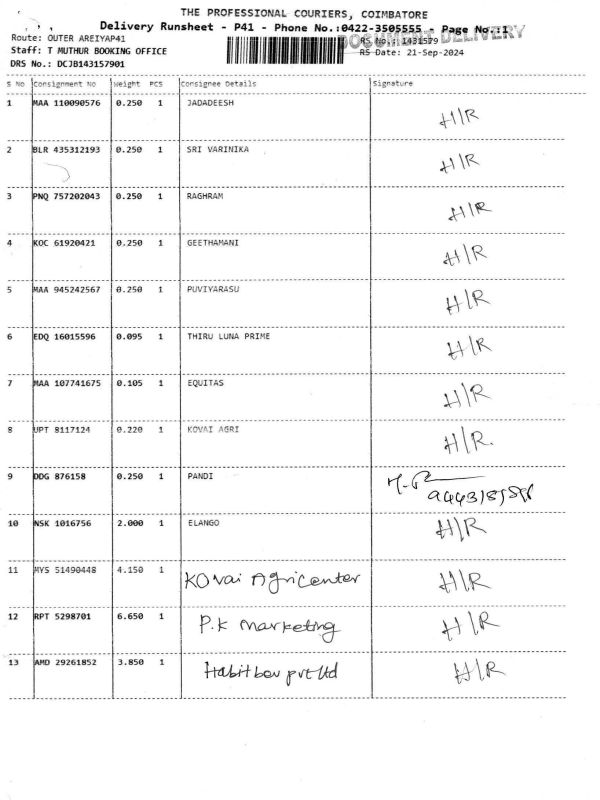 THE PROFESSIONAL COURIERS, COIMBATORE
Delivery Runsheet - P41 - Phone No.:0422-3505555 - Page No.:1
DOCUMENT DELIVERY
Route: OUTER AREIYAP41
RS No.: 1431579
Staff: T MUTHUR BOOKING OFFICE
RS Date: 21-Sep-2024
DRS No.: DCJB143157901
S No Consignment No Weight PCS Consignee Details Signature
1 MAA 110090576 0.250 1 JADADEESH H/R
2 BLR 435312193 0.250 1 SRI VARINIKA H/R
3 PNQ 757202043 0.250 1 RAGHRAM H/R
4 KOC 61920421 0.250 1 GEETHAMANI H/R
5 MAA 945242567 0.250 1 PUVIYARASU H/R
6 EDQ 16015596 0.095 1 THIRU LUNA PRIME H/R
7 MAA 107741675 0.105 1 EQUITAS H/R
8 UPT 8117124 0.220 1 KOVAI AGRI H/R.
9 DDG 876158 0.250 1 PANDI
10 NSK 1016756 2.000 1 ELANGO H/R
11 MYS 51490448 4.150 1 KOvai Agricenter H/R
12 RPT 5298701 6.650 1 P.K marketing H/R
13 AMD 29261852 3.850 1 Habitbev pvt ltd H/R